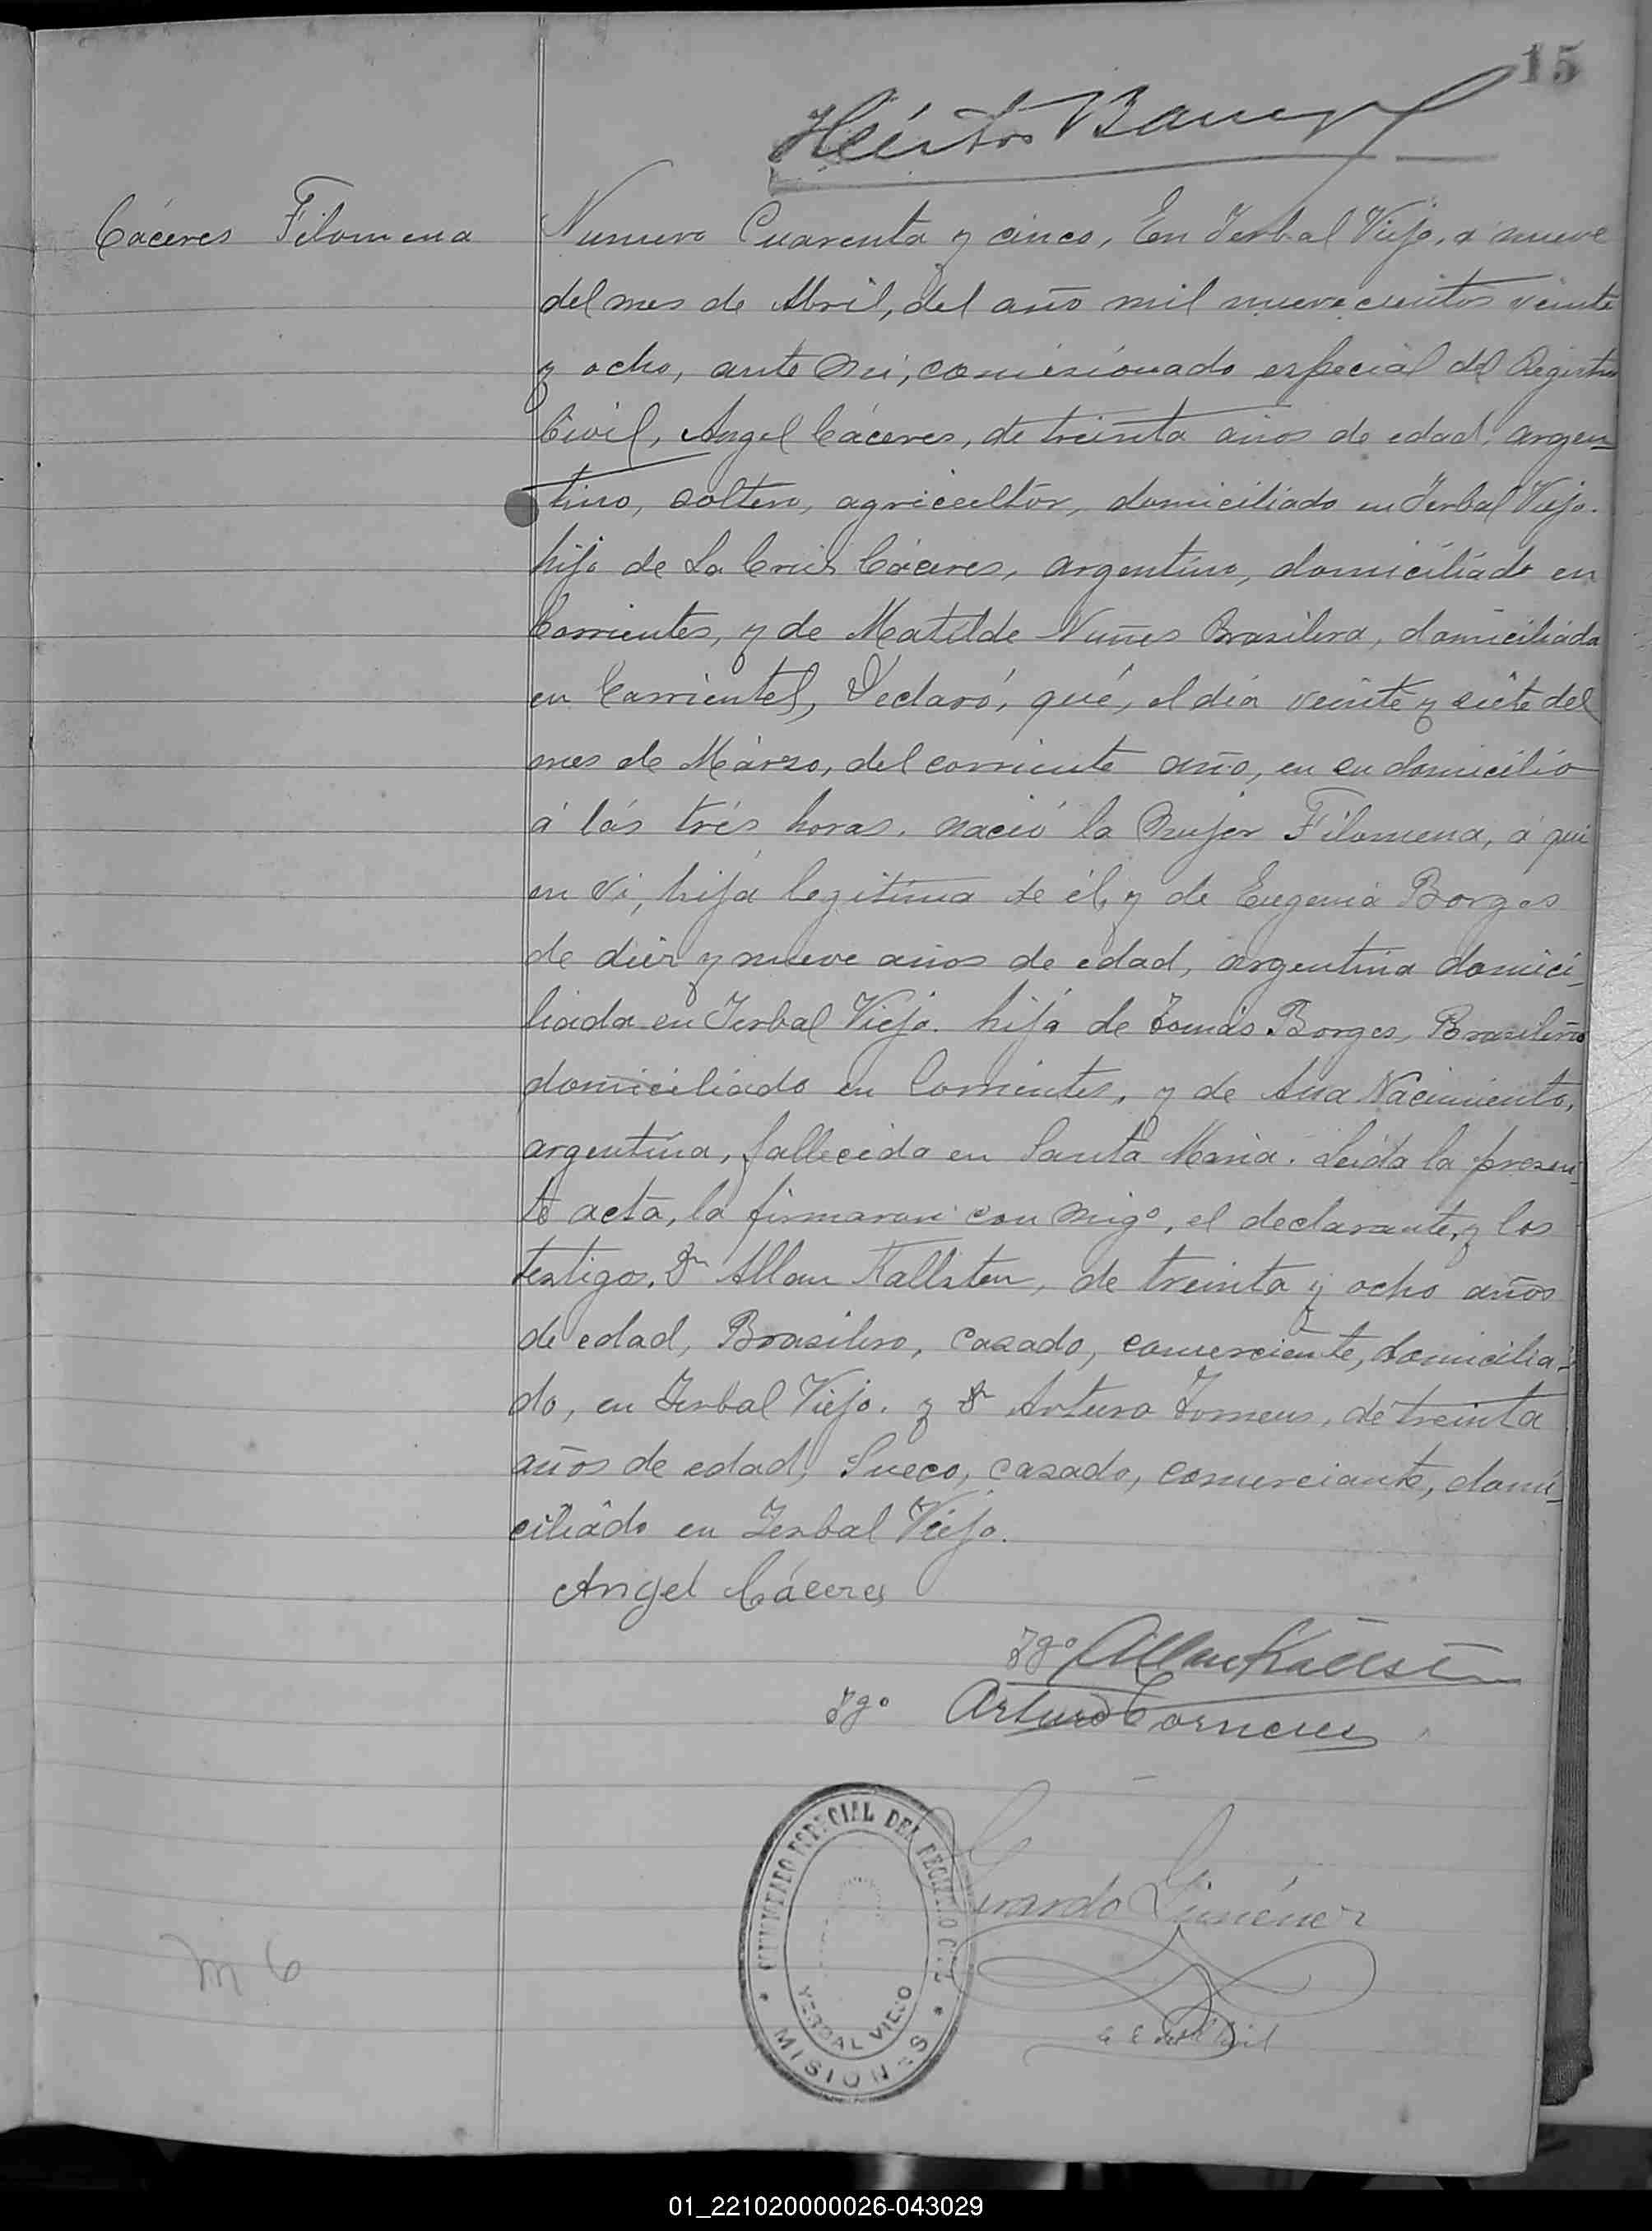 15
Cáceres Filomena
Numero Cuarenta y cinco, En Yerbal Viejo, a nueve
del mes de Abril, del año mil nuevecientos veinte
y ocho, ante mi, comisionado especial del Registro
Civil, Angel Cáceres, de treinta años de edad, argen-
tino, soltero, agricultor, domiciliado en Yerbal Viejo.
hijo de La Cruz Cáceres, argentino, domiciliado en
Corrientes, y de Matilde Nuñes Brasilera, domiciliada
en Corrientes, Declaró, qué, el día veinte y siete del
mes de Marzo, del corriente año, en su domicilio
á lás trés horas. nació la mujer Filomena, á qui
en vi, hija legitima de él, y de Eugenia Borges
de diez y nueve años de edad, argentina domici-
liada en Yerbal Viejo. hija de Tomás Borges, Brasilero
domiciliado en Corrientes, y de Ana Nacimiento,
argentina, fallecida en Santa Maria. Leída la presen-
te acta, la firmaron con migo, el declarante, y los
testigos, Dn Allan Kallsten, de treinta y ocho años
de edad, Brasilero, casado, comerciente, domicilia-
do, en Yerbal Viejo. y Dn Arturo Torneus, de treinta
años de edad, Sueco, casado, comerciante, domi-
ciliado en Yerbal Viejo.
Angel Cáceres
Tgo Allan Kallsten
Tgo Arturo Torneus
COMISIONADO ESPECIAL DEL REGISTRO CIVIL
YERBAL VIEJO
* MISIONES *
Gerardo Giménez
M 6
01_221020000026-043029